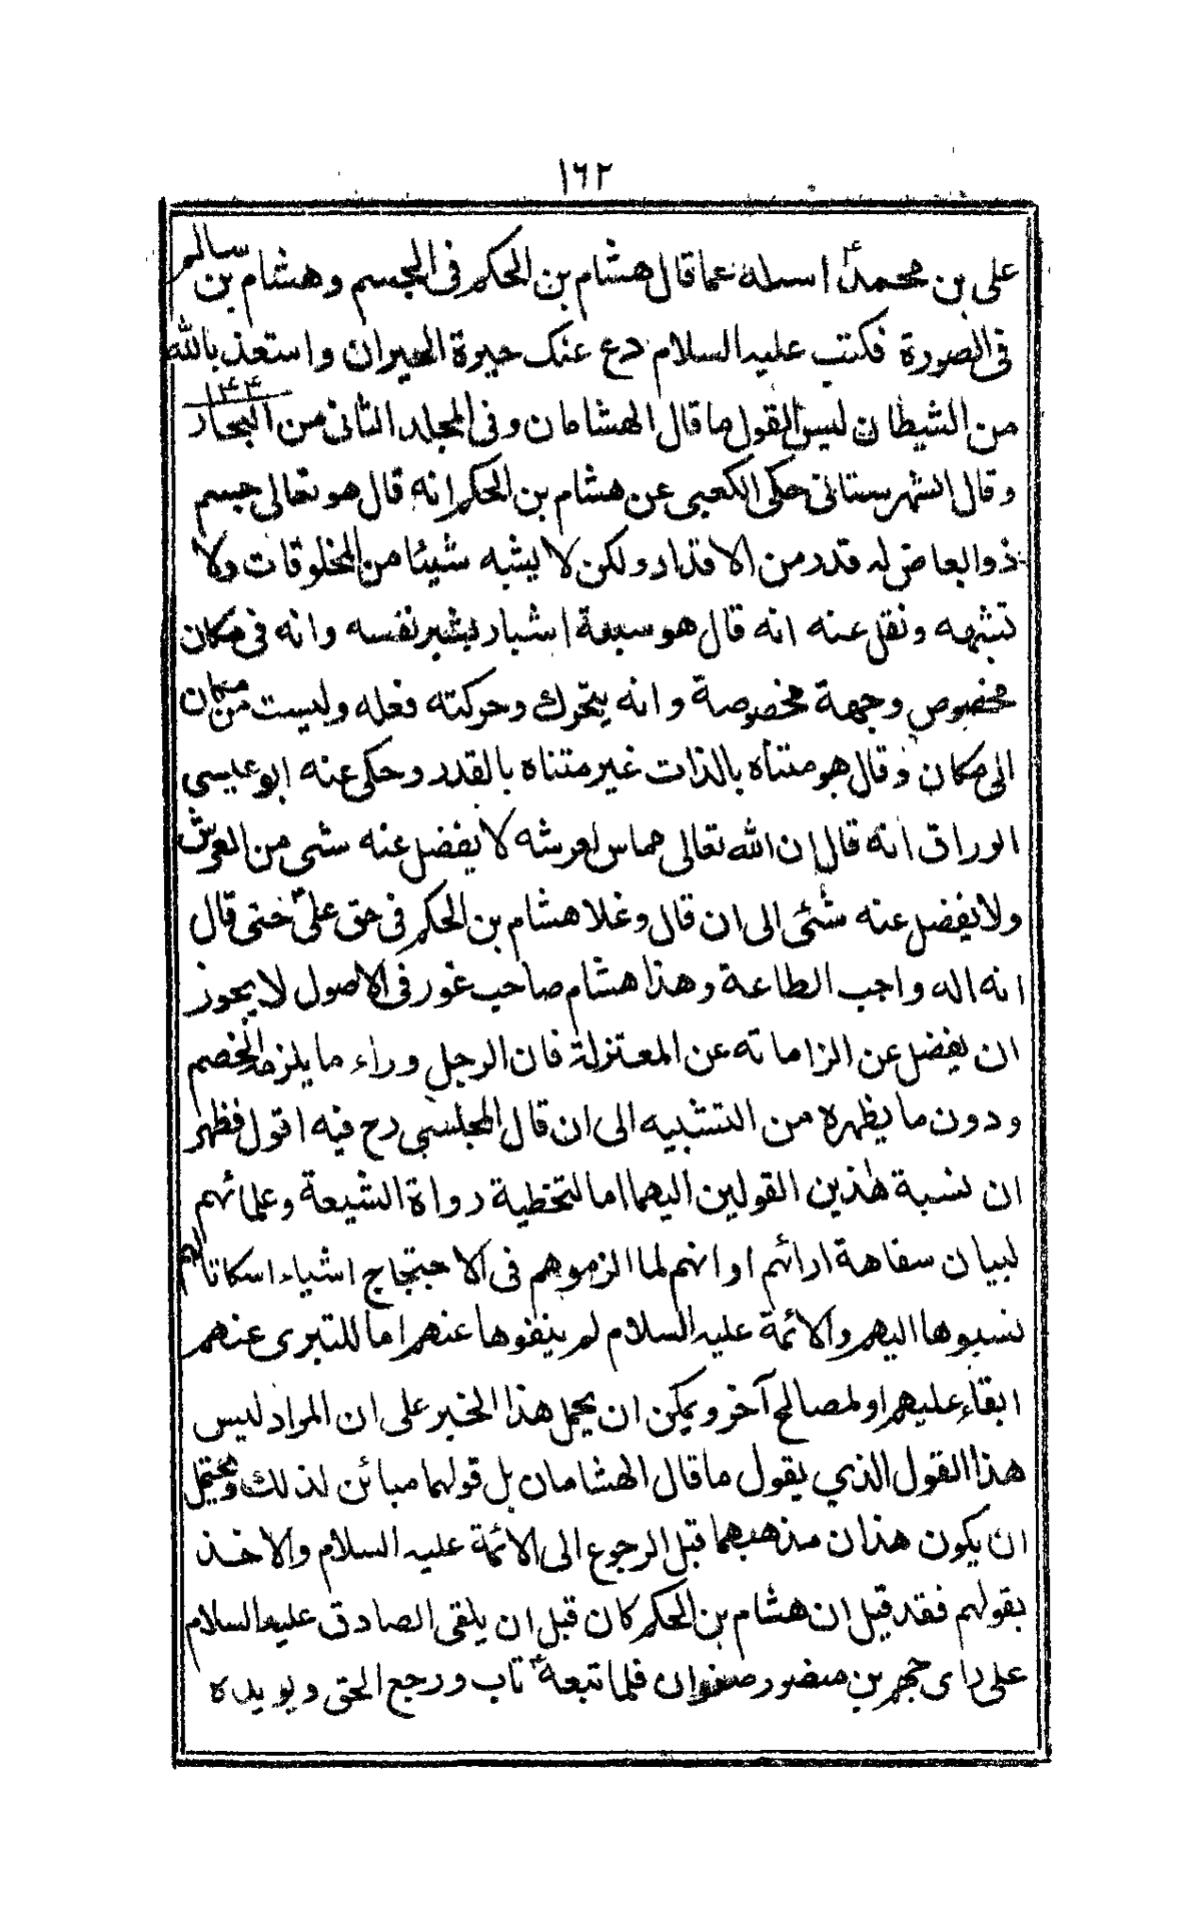 ١٦٢
على بن محمدؑ اسئله عما قال هشام بن الحكم فى الجسم وهشام بن سالم
فى الصورة فكتب عليه السلام دع عنك حيرة الحيران واستعذ بالله
من الشيطان ليس القول ما قال الهشامان وفى المجلد الثانى من البحار ١٤٤
وقال الشهرستانى حكى الكعبى عن هشام بن الحكم انه قال هو تعالى جسم
ذو ابعاض له قدر من الاقدار ولكن لا يشبه شيئا من المخلوقات ولا
تشبهه ونقل عنه انه قال هو سبعة اشبار بشبر نفسه وانه فى مكان
مخصوص وجهة مخصوصة وانه يتحرك وحركته فعله وليست من مكان
الى مكان وقال هو متناه بالذات غير متناه بالقدر وحكى عنه ابو عيسى
الوراق انه قال ان الله تعالى مماس لعرشه لا يفضل عنه شى من العرش
ولا يفضل عنه شئى الى ان قال وغلا هشام بن الحكم فى حق علىؑ حتى قال
انه اله واجب الطاعة وهذا هشام صاحب غور فى الاصول لا يجوز
ان يغفل عن الزاماته عن المعتزلة فان الرجل وراء ما يلزمه الخصم
ودون ما يظهره من التشبيه الى ان قال المجلسى رح فيه اقول فظهر
ان نسبة هذين القولين اليهما اما لتخطية رواة الشيعة وعلمائهم
لبيان سفاهة ارائهم او انهم لما الزموهم فى الاحتجاج اشياء اسكاتا لهم
نسبوها اليهم والائمة عليه السلام لم ينفوها عنهم اما للتبرى عنهم
ابقاء عليهم او لمصالح آخر ويمكن ان يحمل هذا الخبر على ان المراد ليس
هذا القول الذي يقول ما قال الهشامان بل قولهما مبائن لذلك ويحتمل
ان يكون هذان مذهبهما قبل الرجوع الى الائمة عليه السلام والاخذ
بقولهم فقد قيل ان هشام بن الحكم كان قبل ان يلقى الصادق عليه السلام
على راى جهم بن صفوان فلما تبعهؑ تاب ورجع الى الحق ويويده